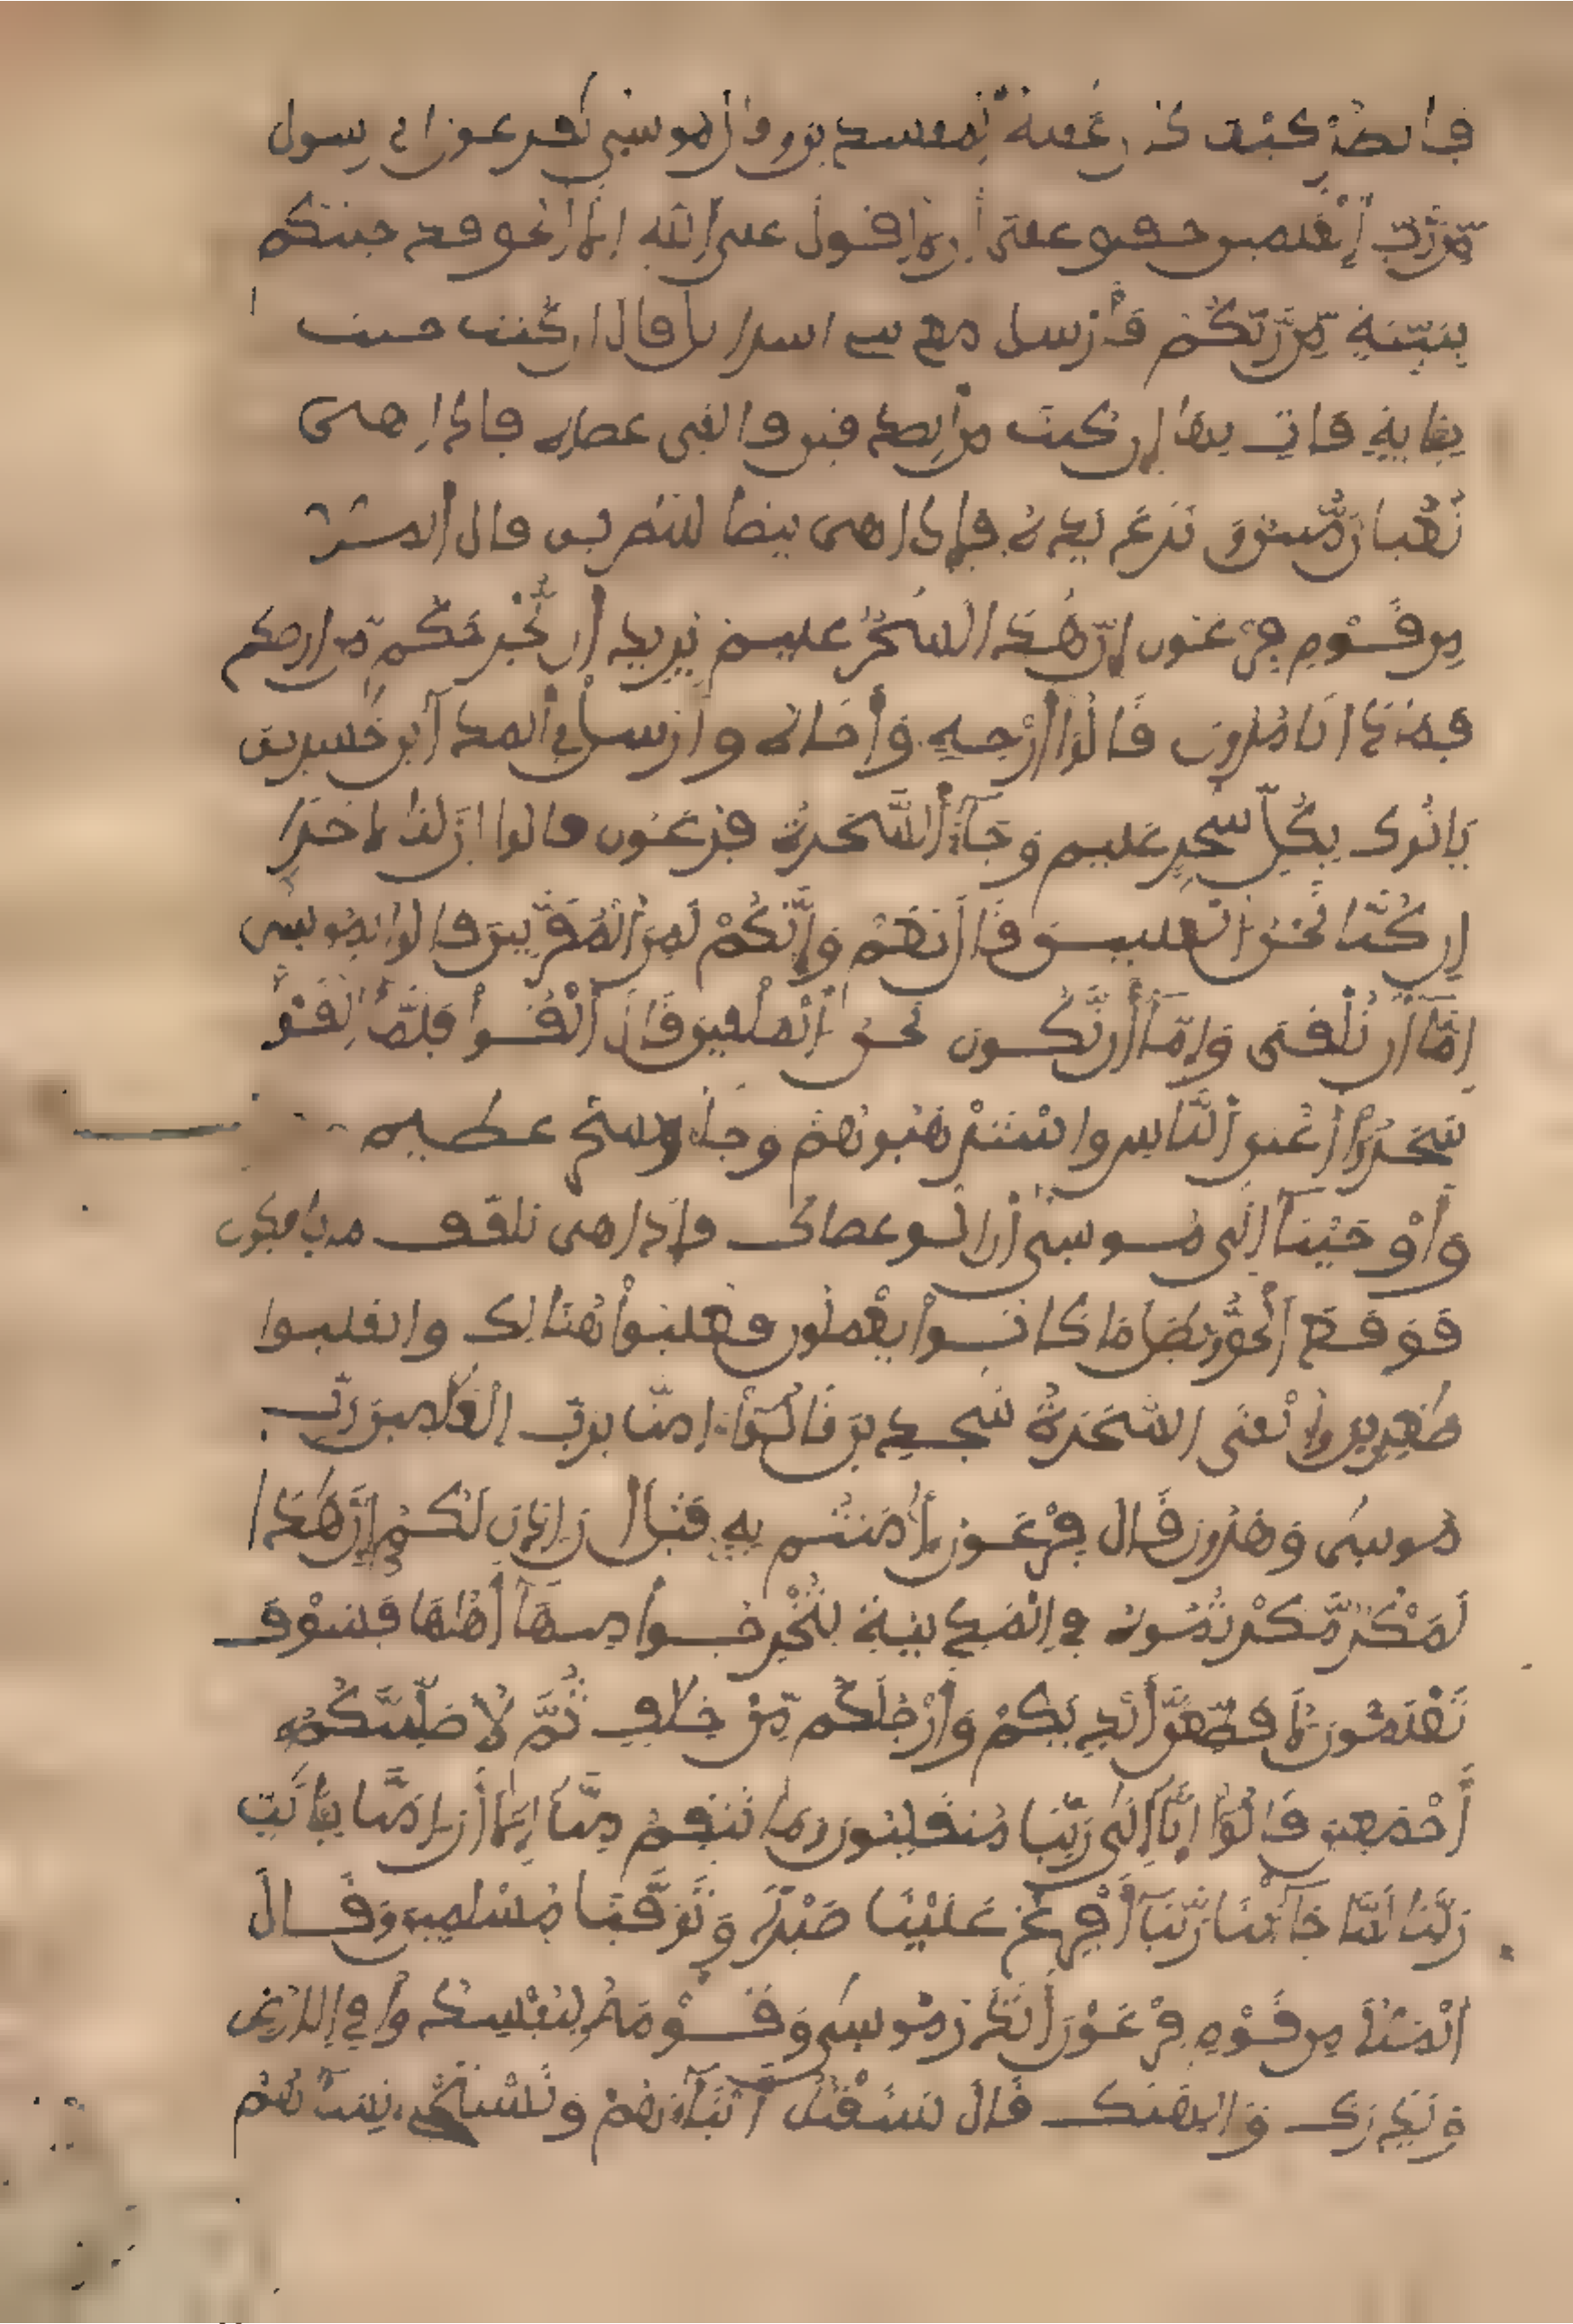 فانظر كيف كان عقبة المفسدين وقال موسى يفرعون اني رسول
من رب العلمين حقيق على ان لا اقول على الله الا الحق قد جئتكم
ببينة من ربكم فأرسل معي بني اسراءيل قال ان كنت جئت
بءاية فات بها ان كنت من الصدقين فالقى عصاه فاذا هي
ثعبان مبين ونزع يده فإذا هي بيضاء للنظرين قال الملأ
من قوم فرعون إن هذا لسحر عليم يريد أن يخرجكم من ارضكم
فماذا تامرون قالوا أرجه وأخاه وارسل في المدائن حشرين
ياتوك بكل سحر عليم وجاء السحرة فرعون قالوا ان لنا لاجرا
ان كنا نحن الغلبين قال نعم وإنكم لمن المقربين قالوا يموسى
إما أن تلقى وإما أن نكون نحن الملقين قال ألقوا فلما القوا
سحروا أعين الناس واسترهبوهم وجاءو بسحر عظيم
وأوحينا إلى موسى أن الق عصاك فإذا هي تلقف ما يافكون
فوقع الحق وبطل ما كانوا يعملون فغلبوا هنالك وانقلبوا
صغرين وألقى السحرة سجدين قالوا ءامنا برب العلمين رب
موسى وهرون قال فرعون ءأمنتم به قبل أن ءاذن لكم إن هذا
لمكر مكرتموه في المدينة لتخرجوا منها أهلها فسوف
تعلمون لأقطعن أيديكم وأرجلكم من خلف ثم لأصلبنكم
أجمعين قالوا إنا إلى ربنا منقلبون وما تنقم منا إلا أن ءامنا بءايت
ربنا لما جاءتنا ربنا أفرغ علينا صبرا وتوفنا مسلمين وقال
الملأ من قوم فرعون أتذر موسى وقومه ليفسدوا في الارض
ويذرك وءالهتك قال سنقتل أبناءهم ونستحي نساءهم